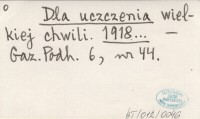 Dla uczczenia wiel-
kiej chwili. 1918... —
Gaz. Podh. 6, nr 44.